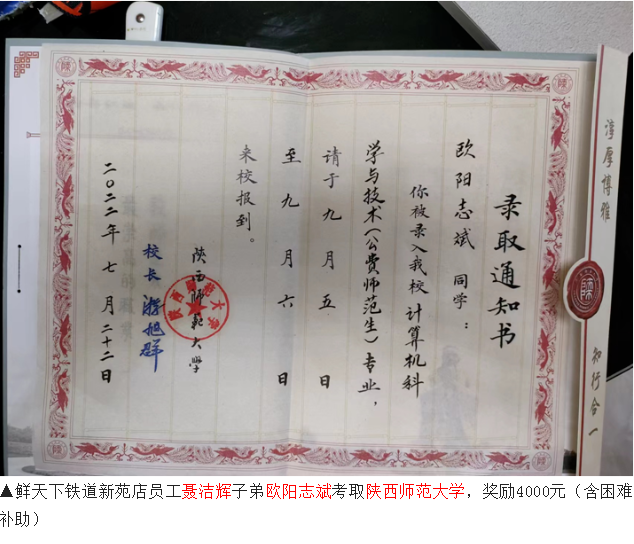 淳厚博雅
知行合一
录取通知书
欧阳志斌 同学：
你被录入我校计算机科
学与技术(公费师范生)专业，
请于九月五日
至九月六日
来校报到。
陕西师范大学
校长 游旭群
二〇二二年七月二十二日
▲鲜天下铁道新苑店员工聂洁辉子弟欧阳志斌考取陕西师范大学，奖励4000元（含困难
补助）